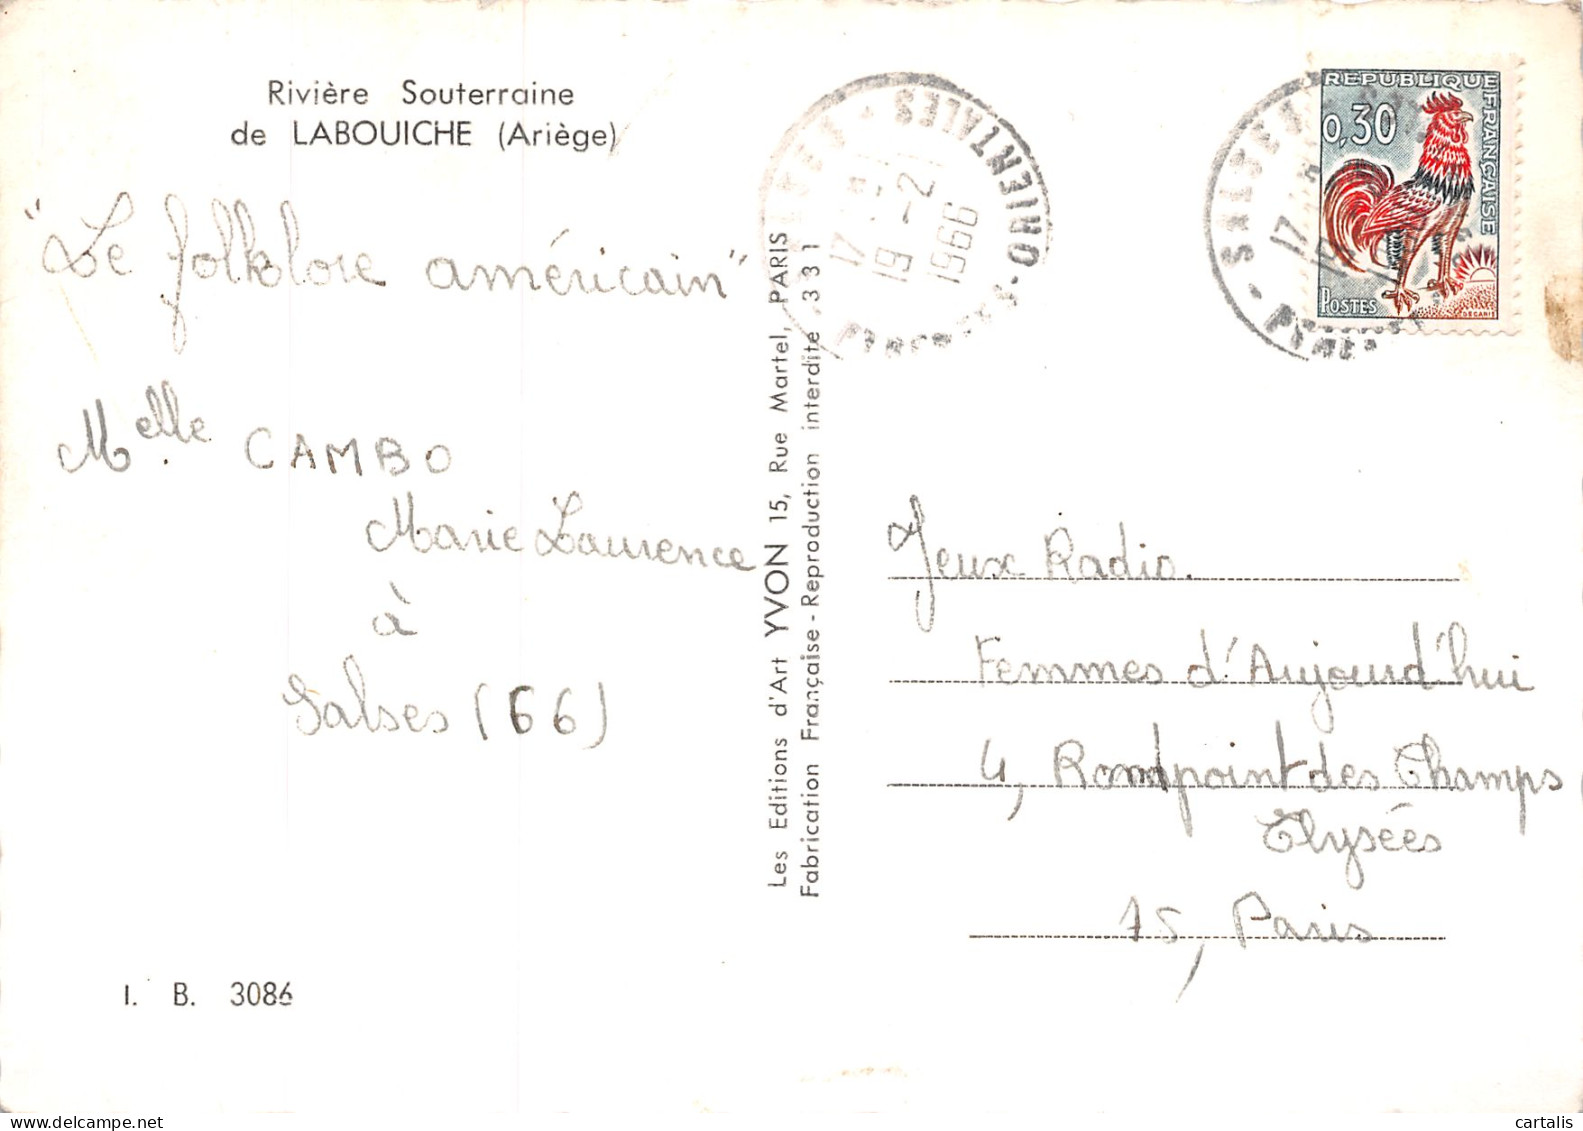 Rivière Souterraine
de LABOUICHE (Ariège)
"Le folklore américain"
Melle. CAMBO
Marie Laurence
à
Salses (66)
I. B. 3086
Les Editions d'Art YVON 15, Rue Martel, PARIS
Fabrication Française - Reproduction interdite 331
17
19 - 2
1966
ORIENTALES
REPUBLIQUE FRANÇAISE
0,30
POSTES
DECARIS
SALSES
17
19
Jeux Radio.
Femmes d'Aujourd'hui
4, Rondpoint des Champs
Elysées
75, Paris
cartalis